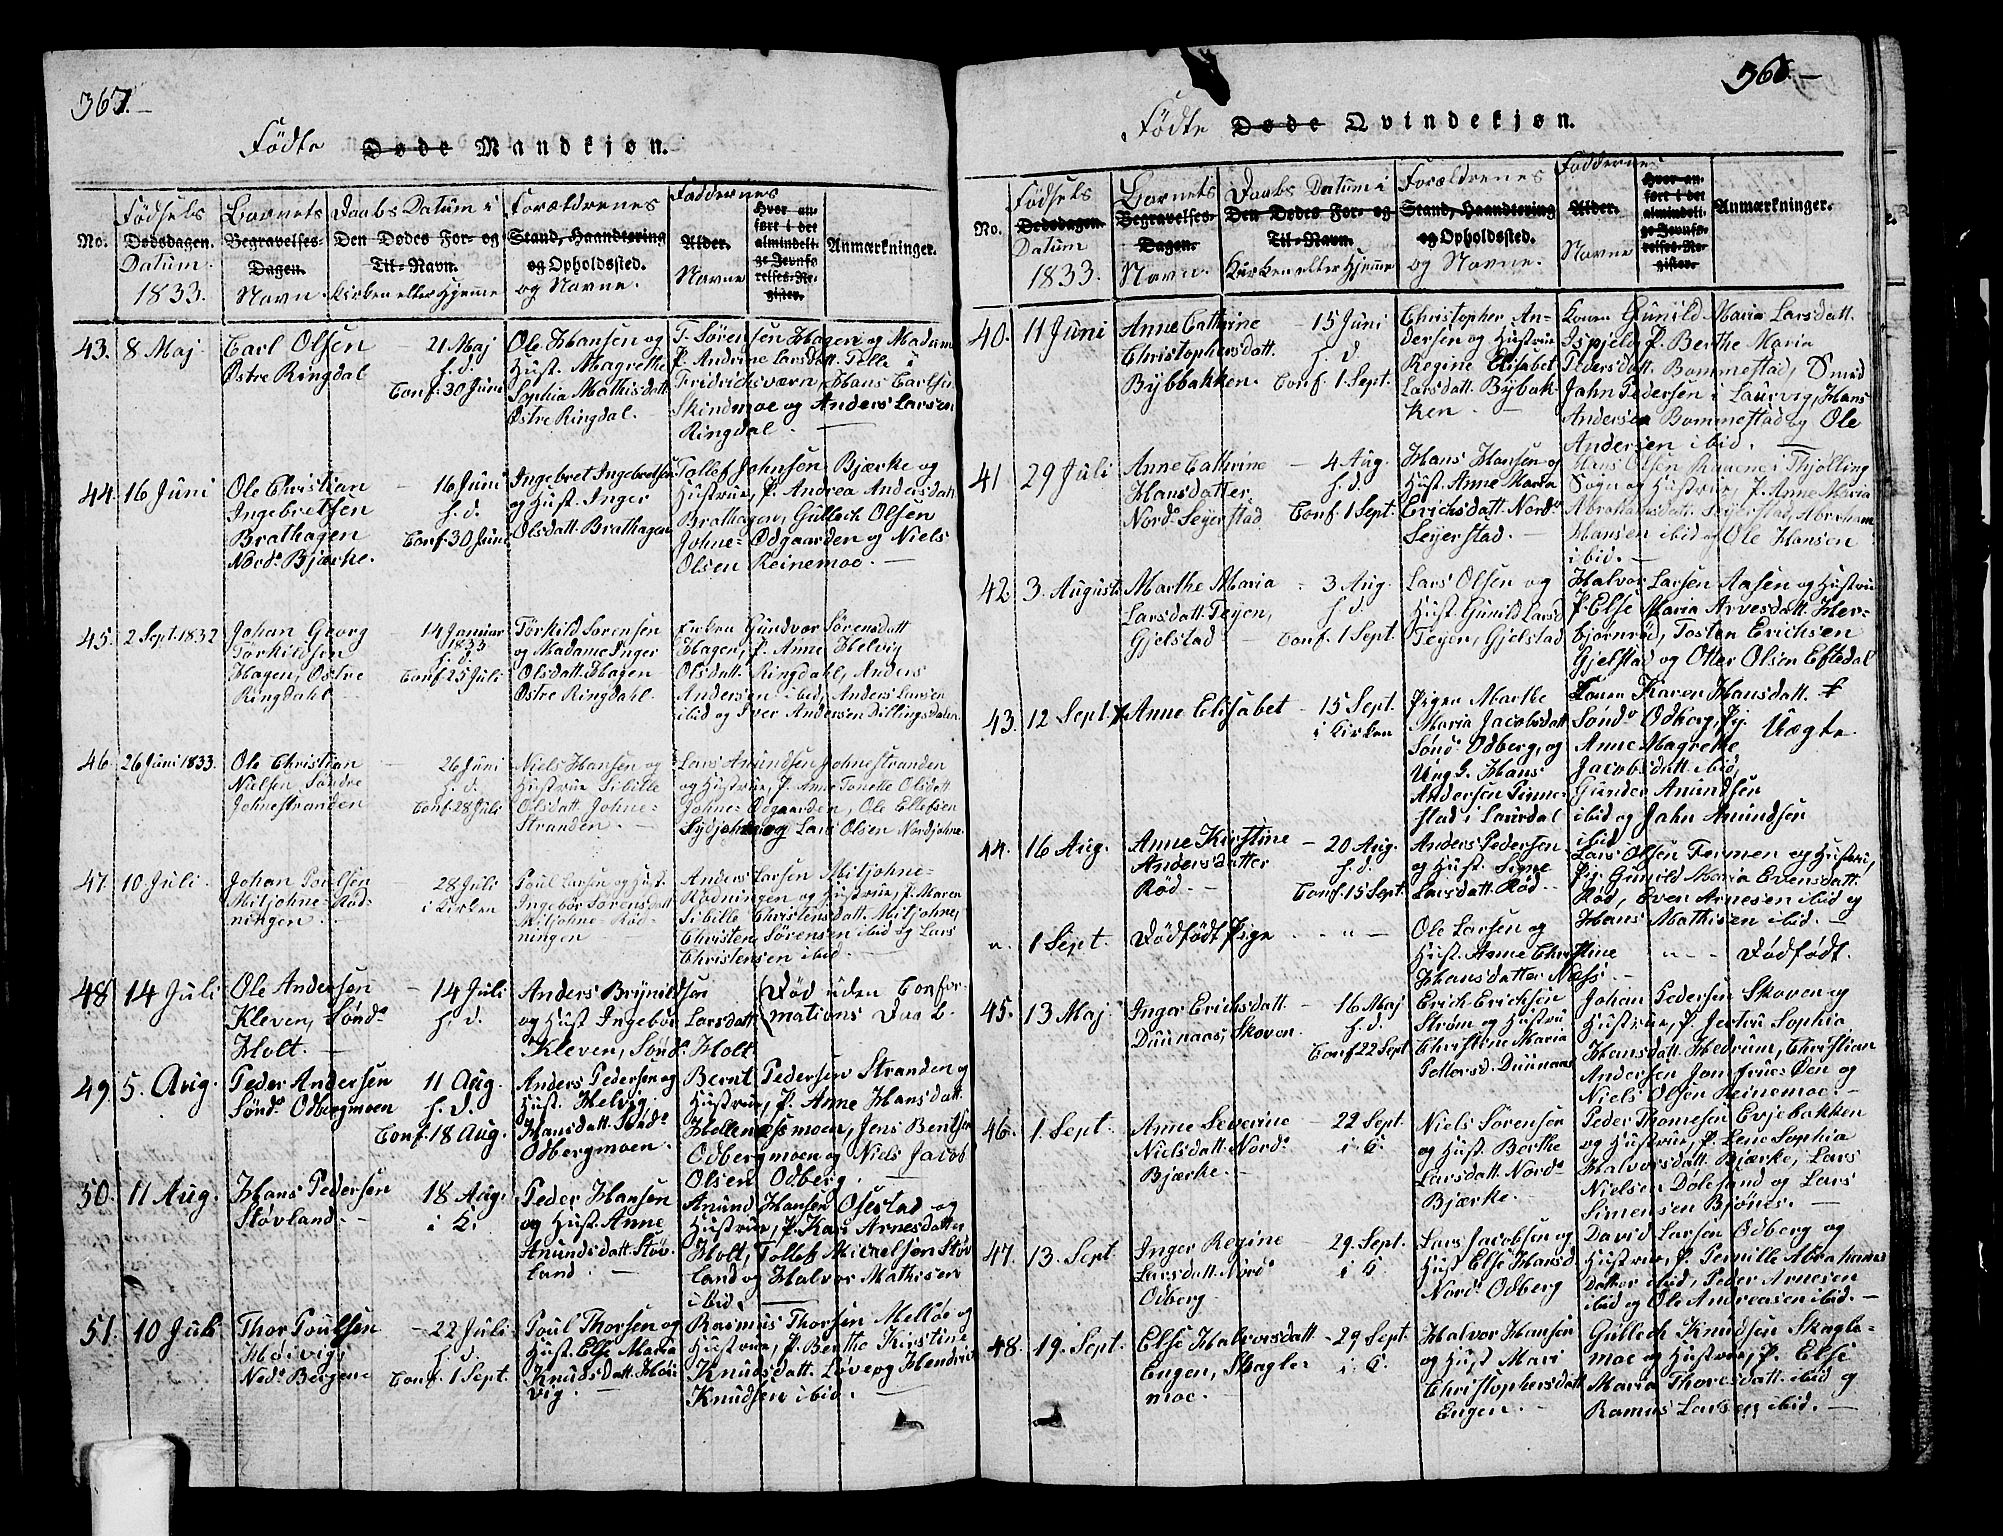 367.
Födte Døde Mandkjøn.
No.
Födsels
Dødsdagen.
Datum
1833.
Barnets
Begravelses-
Dagen.
Navn.
Daabs Datum i
Den Dødes For- og
Til-Navn.
Kirken eller Hjemme
Forældrenes
Stand, Haandtering
og Opholdssted.
og Navne.
Faddernes
Alder.
Navne
Hvor an-
ført i det
almindeli-
ge Jevnfø-
relses-Re-
gister.
Anmærkninger.
43. 8 Maj
Carl Olsen
Østre Ringdal
21 Maj
h. d.
Conf. 30 Juni
Ole Hansen og
Hust. Magrethe
Sophia Mathisdatt
Østre Ringdal.
T. Sørensen Hagen og Madam
P. Andrine Larsdatt. Tolle i
Fridrichsværn Hans Carlsen
Skindmoe og Anders Larsen
Ringdal.
44. 16 Juni
Ole Christian
Ingebretsen
Brathagen
Nord. Bjærke.
16 Juni
h. d.
Conf. 30 Juni
Ingebret Ingebretsen
og Hust. Inger
Olsdatt. Brathagen
Tollef Johnsen Bjærke og
Hustrue, P. Andrea Andersdatt
Brathagen, Gullech Olsen
Johne- Odgaarden og Niels
Olsen Reinemoe.
45. 2 Sept. 1832
Johan Georg
Törkildsen
Hagen, Østre
Ringdahl
14 Januar
1833.
h. d.
Conf. 25 Juli
Törkild Sørensen
og Madame Inger
Olsdatt. Hagen
Østre Ringdahl.
Enken Gundvor Sörensdatt
Hagen, P. Anne Helvig
Olsdatt. Ringdahl, Anders
Andersen ibid, Anders Larsen
ibid og Iver Andersen Dillingsdalen
46. 26 Juni 1833.
Ole Christian
Nielsen, Søndre
Johnestranden
26 Juni
h. d.
Conf. 28 Juli
Niels Hansen og
Hustrue Sibille
Olsdatt. Johne-
Stranden.
Lars Amundsen Johnestranden
og Hustrue, P. Anne Tonette Olsdatt
Johne- Odgaarden, Ole Ellefsen
Sydjohne og Lars Olsen Nordjohne.
47. 10 Juli
Johan Poulsen
Mitjohne-Röd-
ningen
28 Juli
i Kirken
Poul Larsen og Hust.
Ingebör Sørensdatt
Mitjohne-Röd-
ningen
Anders Larsen Mitjohne-
Rödningen og Hustrue, P. Maren
Sibille Christensdatt. Mitjohne,
Christen Sörensen ibid og Lars
Christensen ibid.
48. 14 Juli
Ole Andersen
Kleven, Sönd.
Holt.
14 Juli
h. d.
Anders Brynildsen
og Hust Ingebör Larsdatt
Kleven, Sönd. Holt
Död uden Confor-
mations Daab.
49. 5. Aug.
Peder Andersen
Sönd. Odbergmoen
11 Aug.
h. d.
Conf. 18 Aug.
Anders Pedersen og
Hust. Helvig
Hansdatt. Sönd.
Odbergmoen.
Bernt Pedersen Stranden og
Hustrue, P. Anne Hansdatt.
Hellenæsmoen, Jens Bentsen
Odbergmoen og Niels Jacob
Olsen Odberg.
50. 11 Aug.
Hans Pedersen
Støvland.
18 Aug.
i K.
Peder Hansen
og Hust. Anne
Anundsdatt. Støv-
land.
Anund Hansen Ofestad og
Hustrue, P. Kari Arnesdatter
Holt, Tollef Micaelsen Støv-
land og Halvor Mathisen
ibid.
51. 10 Juli
Thor Poulsen
Høivig,
Ned. Bergene
22 Juli
h. d.
Conf. 1 Sept.
Poul Thorsen og
Hust. Else Maria
Knudsdatt. Høi-
vig.
Rasmus Thorsen Melløs og
Hustrue, P. Berthe Kirstine
Knudsdatt. Løve og Hendrich
Knudsen ibid.
368.
Födte Døde Qvindekjøn.
No.
Födsels
Dødsdagen.
Datum
1833.
Barnets
Begravelses-
Dagen.
Navn.
Daabs Datum i
Den Dødes For- og
Til-Navn.
Kirken eller Hjemme
Forældrenes
Stand, Haandtering
og Opholdssted.
og Navne.
Faddernes
Alder.
Navne
Hvor an-
ført i det
almindeli-
ge Jevnfø-
relses-Re-
gister.
Anmærkninger.
40. 11 Juni
Anne Cathrine
Christophersdatt.
Bybbakken.
15 Juni
h. d.
Conf. 1 Sept.
Christopher An-
dersen og Hustrue
Regine Elisabet
Larsdatt. Bybak-
ken
Konen Gunild Maria Larsdatt.
Ispjeld, P. Berthe Maria
Pedersdatt. Bommestad, Smed
Jahn Pedersen i Laurvig, Hans
Andersen Bommestad og Ole
Andersen ibid.
41 29 Juli
Anne Cathrine
Hansdatter
Nord. Seyerstad
4 Aug.
h. d.
Conf. 1 Sept.
Hans Hansen og
Hust. Anne Maria
Erichsdatt. Nord.
Seyerstad.
Hans Olsen Ravene i Thjølling
Sogn og Hustrue, P. Anne Maria
Abrahamsdatt. Seyerstad, Abraham
Hansen ibid og Ole Hansen
ibid.
42 3. August
Marthe Maria
Larsdatt. Teyen,
Gjelstad
3 Aug.
h. d.
Conf. 1 Sept.
Lars Olsen og
Hust. Gunild Larsd
Teyen, Gjelstad
Halvor Larsen Aasen og Hustrue
P. Else Maria Arvesdatt. Her-
bjørnröd, Tosten Erichsen
Gjelstad og Otter Olsen Eftedal
43. 12 Sept.
Anne Elisabet
15 Sept.
i Kirken
Pigen Marthe
Maria Jacobsdatt
Sönd. Odberg, og
Ung. Hans
Andersen Tinne-
stad i Laurdal
Konen Karen Hansdatt.
Sönd. Odberg, Pi.
Anne Magrethe
Jacobsdatt. ibid,
Gunder Amundsen
ibid og Jahn Amundsen
ibid
Uægte
44. 16 Aug.
Anne Kirstine
Andersdatter
Röd.
20 Aug.
h. d.
Conf. 15 Sept.
Anders Pedersen
og Hust. Sine
Larsdatt. Röd.
Lars Olsen Fermen og Hustrue,
Pi. Gunild Maria Evensdatt.
Röd, Even Arnesen ibid og
Hans Mathisen ibid.
n. 1 Sept.
Dödfödt Pige
Ole Larsen og
Hust. Anne Christine
Hansdatter Næss
Dödfödt.
45. 13 Maj
Inger Erichsdatt.
Duunaas, Skoven
16 Maj
h. d.
Conf 22 Sept
Erich Erichsen
Strøm og Hustrue
Christine Maria
Pettersd. Duunaas
Johan Pedersen Skoven og
Hustrue, P. Jertru Sophia
Hansdatt. Hedrum, Christian
Andersen Jomfrues Øen og
Niels Olsen Reinemoe.
46. 1. Sept.
Anne Severine
Nielsdatt. Nord.
Bjærke.
22 Sept.
i K.
Niels Sörensen
og Hust. Berthe
Larsdatt. Nord.
Bjærke.
Peder Thomesen Evjebakken
og Hustrue, P. Lene Sophia
Halvorsdatt. Bjærke, Lars
Nielsen Dolesand og Lars
Simensen Bjönes.
47. 13. Sept
Inger Regine
Larsdatt. Nord.
Odberg
29. Sept.
i K.
Lars Jacobsen og
Hust Else Hansd
Nord. Odberg
David Larsen Odberg og
Hustrue, P. Pernille Abrahams
datter ibid, Peder Arnesen
ibid og Ole Andreasen ibid.
48. 19. Sept.
Else Halvorsdatt.
Engen, Skagle-
moe.
29 Sept.
i K.
Halvor Hansen
og Hust Mari
Christophersdatt
Engen.
Gullech Knudsen Skagle-
moe og Hustrue, P. Else
Maria Thoresdatt. ibid og
Ramus Larsen ibid.